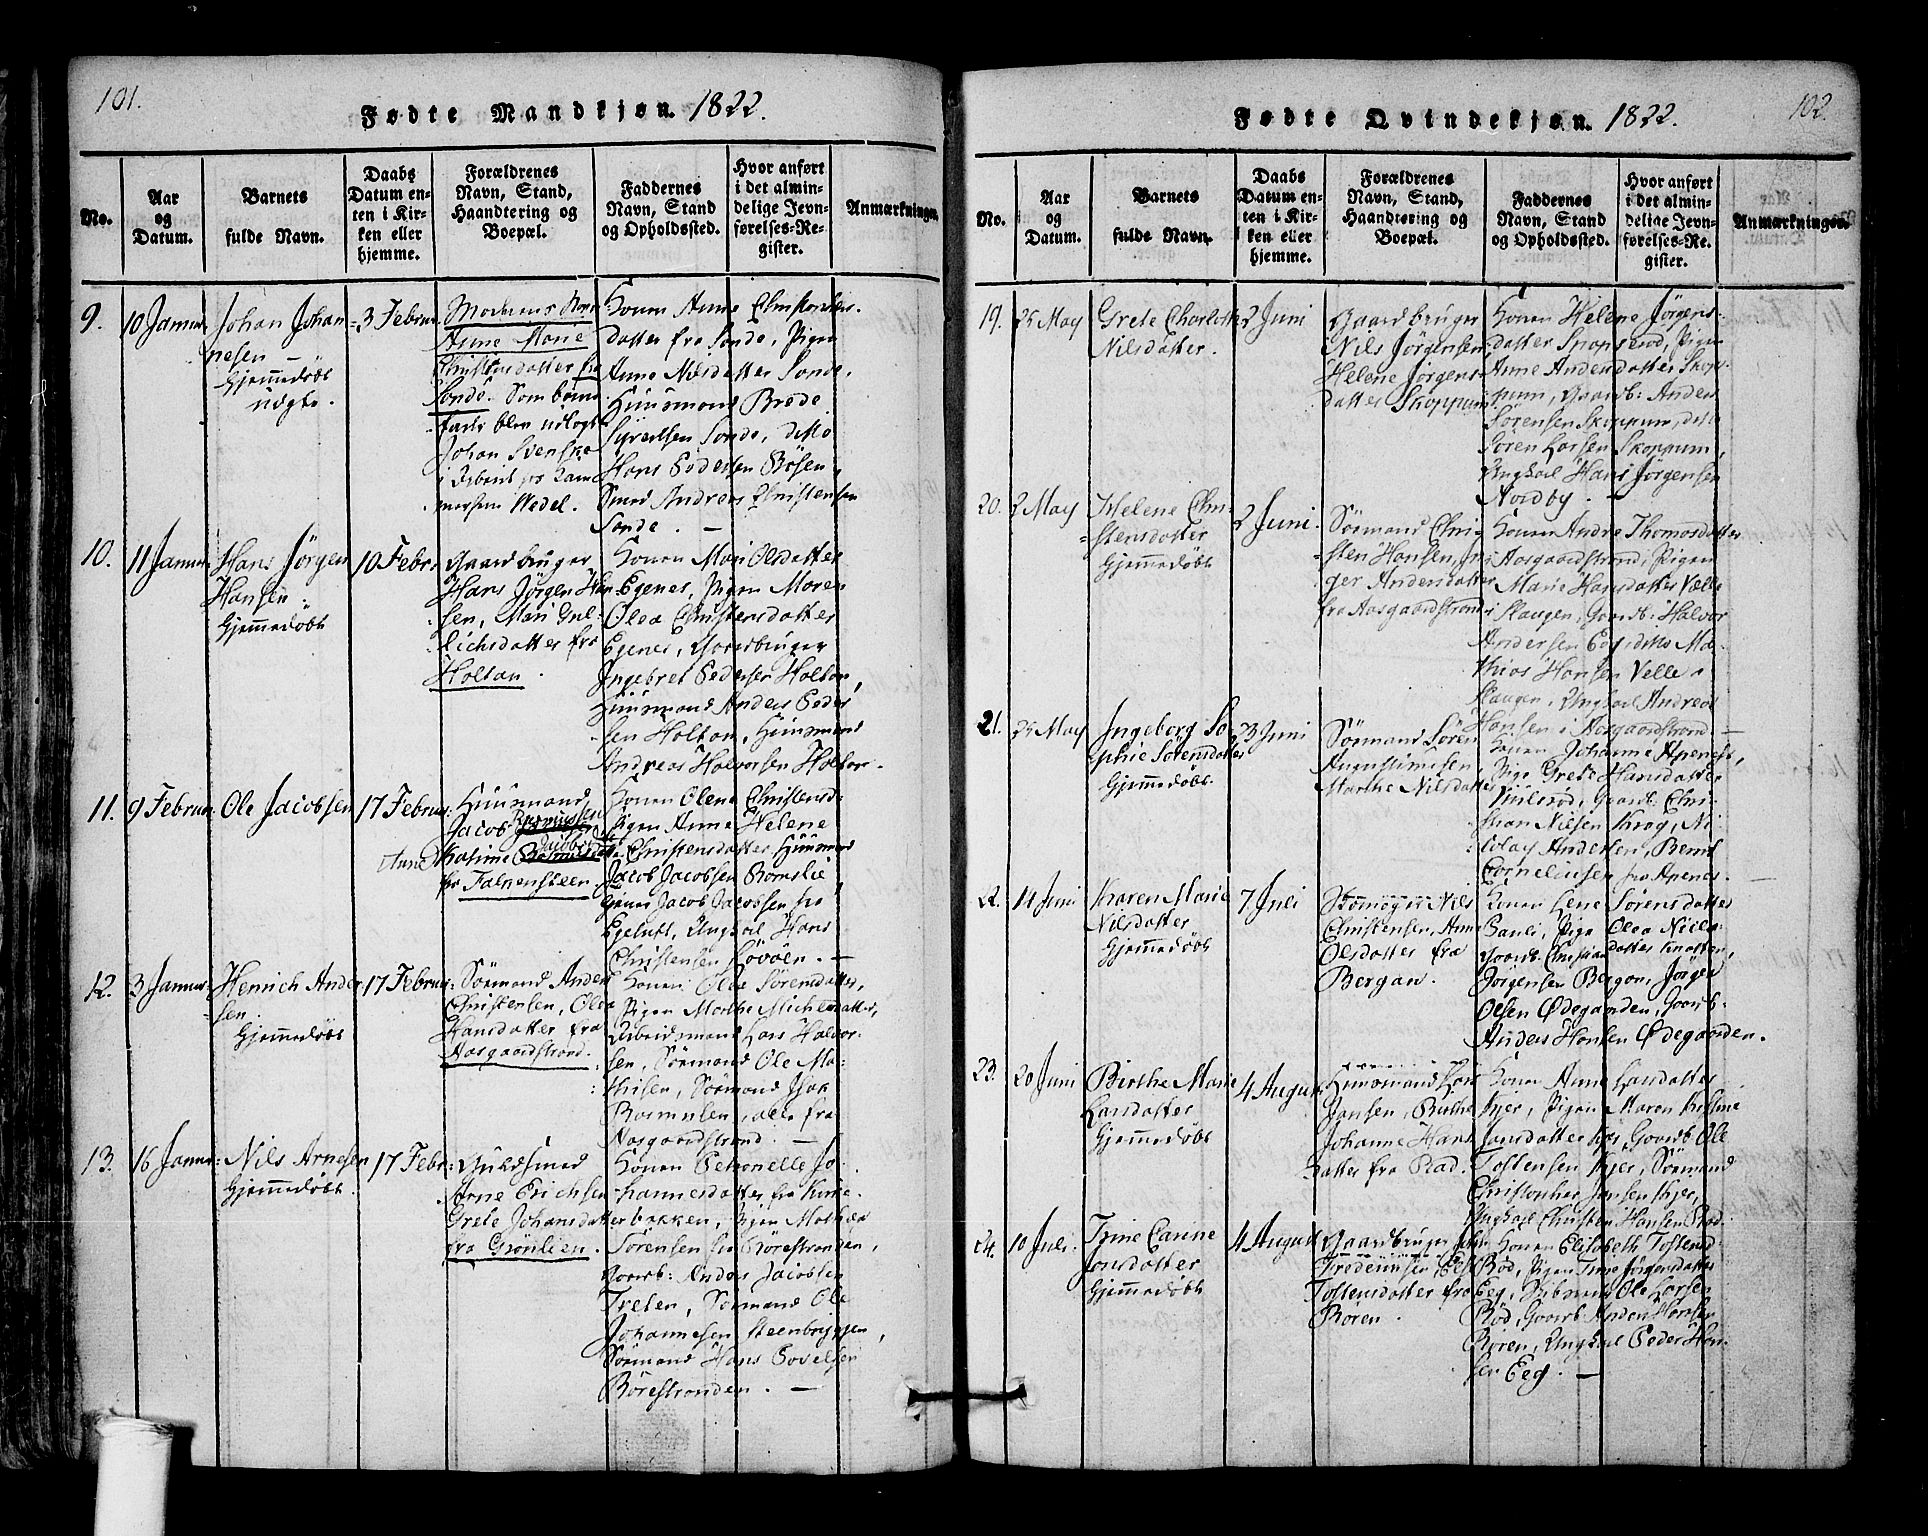 101.
Fødte Mandkjøn. 1822.
No.
Aar
og
Datum.
Barnets
fulde Navn.
Daabs
Datum en-
ten i Kir-
ken eller
hjemme.
Forældrenes
Navn, Stand,
Haandtering og
Boepæl.
Faddernes
Navn, Stand
og Opholdssted.
Hvor anført
i det almin-
delige Jevn-
førelses-Re-
gister.
Anmærkninger.
9.
10 Januar
Johan Johan-
nesen –
Hjemmedøbt
uægte.
3 Februar
Moderens Navn
Anne Marie
Christensdatter fra
Sonde. Som barne-
fader blev udlagt
Johan Svenske
i Arbeid
Wedel.
Konen Anne Christensdatter.
datter fra Sonde, Pigen
Anne Nilsdatter Sonde,
Huusmand Brede
Syvertsen Sonde, ditto
Hans Pedersen Bösen,
Smed Andreas Christensen
Sonde. –
10.
11 Januar
Hans Jørgen
Hansen:
Hjemmedøbt
10 Febr:
Gaardbruger
Hans Jørgen Han-
sen, Mari Gul-
lichsdatter fra
Holtan.
Konen Mari Olsdatter
Egenes, Pigen Maren
Olea Christensdatter
Egenes, Gaardbruger
Ingebret Pedersen Holtan,
Huusmand Anders Peder-
sen Holtan, Huusmand
Andreas Halvorsen Holtan.
11.
9 Februar:
Ole Jacobsen
17 Februar:
Huusmand
Jacob Rasmussen
Anne Katrine
fra Falkensteen.
Konen Olene Christensd:
Pigen Anne Helene
Christensdatter, Huusmand
Jacob Jacobsen Bomslie
Jacob Jacobsen fra
Egelutt, Ungkarl Hans
Christensen Løvöen. –
12.
3 Januar
Henrich Ander-
sen.
Hjemmedøbt
17 Februar:
Sørmand Anders
Christensen, Olea
Hansdatter fra
Aasgaardstrand.
Konen Olea Sörensdatter,
Pigen Marthe Michelsdatter,
Arbeidsmand Lars Halvor-
sen, Sørmand Ole Ma-
thisen, Sørmand Isak
Rasmusen, alle fra
Aasgaardstrand. –
13.
16 Januar:
Nils Arnesen
Hjemmedøbt.
17 Febr:
Guldsmed
Arne Erichsen
Grete Johansdatter
fra Grönlien.
Konen Petronelle Jo-
hannesdatter fra Kirke-
bakken, Pigen Mathea
Sørensen fra Börrestranden,
Gaardb: Anders Jacobsen
Treten, Sørmand Ole
Johannesen Steenbryggen,
Sørmand Hans Povelsen
Börrestranden. –
102.
Fødte Qvindekjøn. 1822.
No.
Aar
og
Datum.
Barnets
fulde Navn.
Daabs
Datum en-
ten i Kir-
ken eller
hjemme.
Forældrenes
Navn, Stand,
Haandtering og
Boepæl.
Faddernes
Navn, Stand
og Opholdssted.
Hvor anført
i det almin-
delige Jevn-
førelses-Re-
gister.
Anmærkninger.
19.
25 May
Grete Charlotte
Nilsdatter.
2 Juni
Gaardbruger
Nils Jørgensen,
Helene Jørgens-
datter Skoppum
Konen Helene Jørgens-
datter Snopsrød, Pigen
Anne Andersdatter Skop-
pum, Gaardb: Anders
Sørensen Skoppum, ditto
Sören Larsen Skoppum,
Ungkarl Hans Jørgensen
Nordby. –
20.
2 May
Helene Chri-
stensdatter
Hjemmedøbt
2 Juni.
Sørmand Chri-
sten Hansen, In-
ger Andersdatter
fra Aasgaardstrand
Konen Andre Thomasdatter
Aasgaardstrand, Pigen
Marie Hansdatter Velle
Skaugen, Gaardb: Halvor
Andersen Eeg, ditto Ma-
thias Hansen Velle
Skaugen, Ungkarl Andreas
Hansen i Aasgaardstrand. –
21.
25 May
Ingeborg So-
phie Sørensdatter
Hjemmedøbt.
23 Juni
Sørmand Sören
Augustinusen,
Marthe Nilsdatter
Konen Johanne Apenes,
Pige Grete Hansdatter
Gaardb: Chri-
stian Nilsen Krog, Ni-
colay Andersen, Bernt
Corneliusen fra Apenes. –
22.
11 Juni
Karen Marie
Nilsdatter
Hjemmedøbt
7 Juli
Nils
Christensen, Anne
Olsdatter fra
Bergan.
Konen Lene Sørensdatter
Pauli, Pige Olea Niels-
datter Knatten,
Gaardb: Christian
Jørgensen Bergan, Jørgen
Olsen Ødegaarden, Gaardb:
Anders Hansen Ødegaarden.
23.
20 Juni
Birthe Marie
Larsdatter
Hjemmedøbt
4 August
Huusmand Lars
Jansen, Birthe
Johanne Hans-
datter fra Rød.
Konen Anne Larsdatter
Kjær, Pigen Maren Kirstine
Jansdatter Kjær, Gaardb: Ole
Tostensen Kjer, Sørmand
Christopher Jensen Kjer,
Ungkarl Christen Hansen Rød
24.
10 Juli.
Trine Carine
Jonsdatter
Hjemmedøbt
4 August
Gaardbruger John
Fredericsen, Else
Tostensdatter fra
Røren.
Konen Elisabeth Tostensd:
Rød, Pigen Trine Jørgensdatter
Eeg, Ole Larsen
Rød, Gaardb: Anders Hansen
Røren, Ungkarl Peder Han-
sen Eeg. –